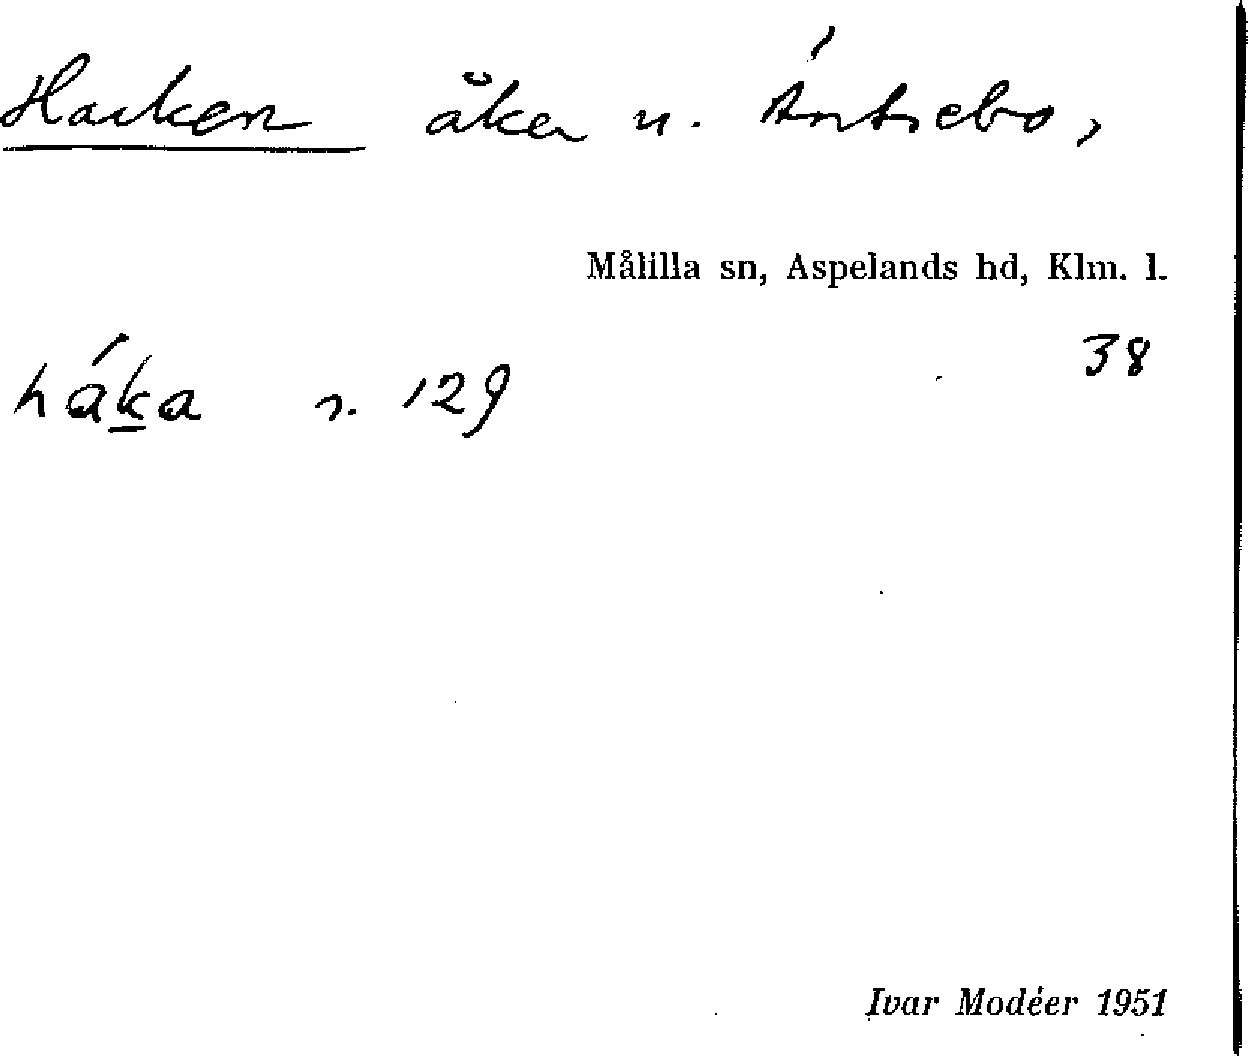 Hacken åker n. Äntsebo,
Målilla sn, Aspelands hd, Klm. l.
38
háka s. 129
Ivar Modéer 1951